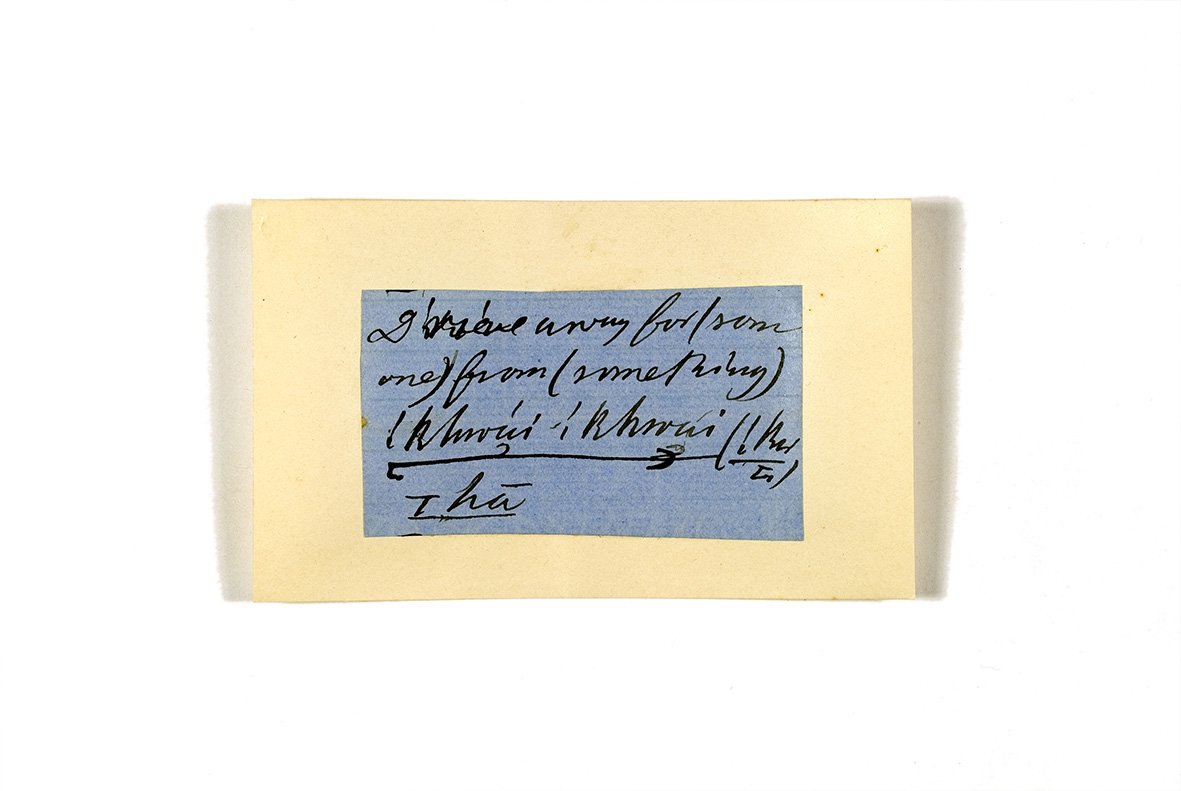 Drive away for (some
one) from (something)
!khwái-!khwái (!kw
I hā